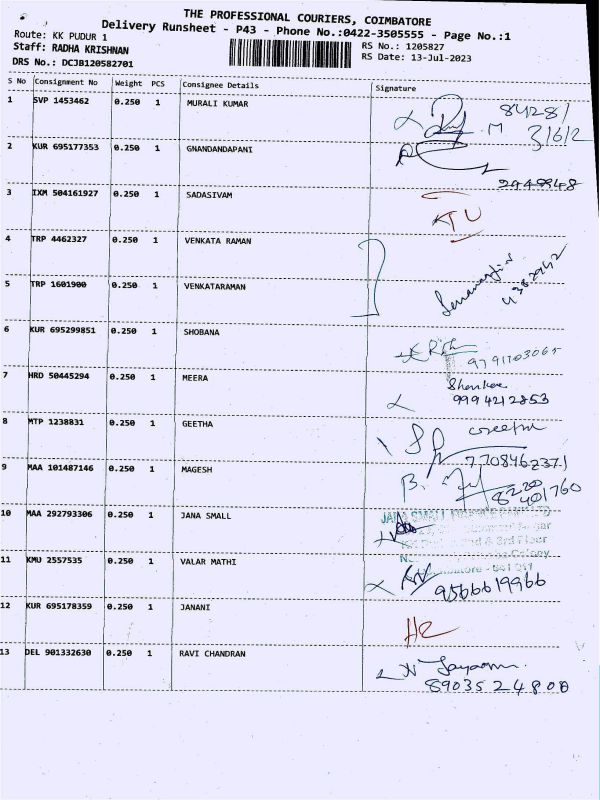 THE PROFESSIONAL COURIERS, COIMBATORE
Delivery Runsheet - P43 - Phone No.:0422-3505555 - Page No.:1
Route: KK PUDUR 1
Staff: RADHA KRISHNAN
RS No.: 1205827
DRS No.: DCJB120582701
RS Date: 13-Jul-2023
S No Consignment No Weight PCS Consignee Details Signature
1 SVP 1453462 0.250 1 MURALI KUMAR
2 KUR 695177353 0.250 1 GNANDANDAPANI
2949948
3 IXM 504161927 0.250 1 SADASIVAM
4 TRP 4462327 0.250 1 VENKATA RAMAN
5 TRP 1601900 0.250 1 VENKATARAMAN
6 KUR 695299851 0.250 1 SHOBANA
9791103065
7 HRD 50445294 0.250 1 MEERA
9994212853
8 MTP 1238831 0.250 1 GEETHA
Geetha
7708462371
9 MAA 101487146 0.250 1 MAGESH
8220
401760
10 MAA 292793306 0.250 1 JANA SMALL
JANA SMALL
3rd Floor
Colony
11 KMU 2557535 0.250 1 VALAR MATHI
9566619966
12 KUR 695178359 0.250 1 JANANI
13 DEL 901332630 0.250 1 RAVI CHANDRAN
8903524808